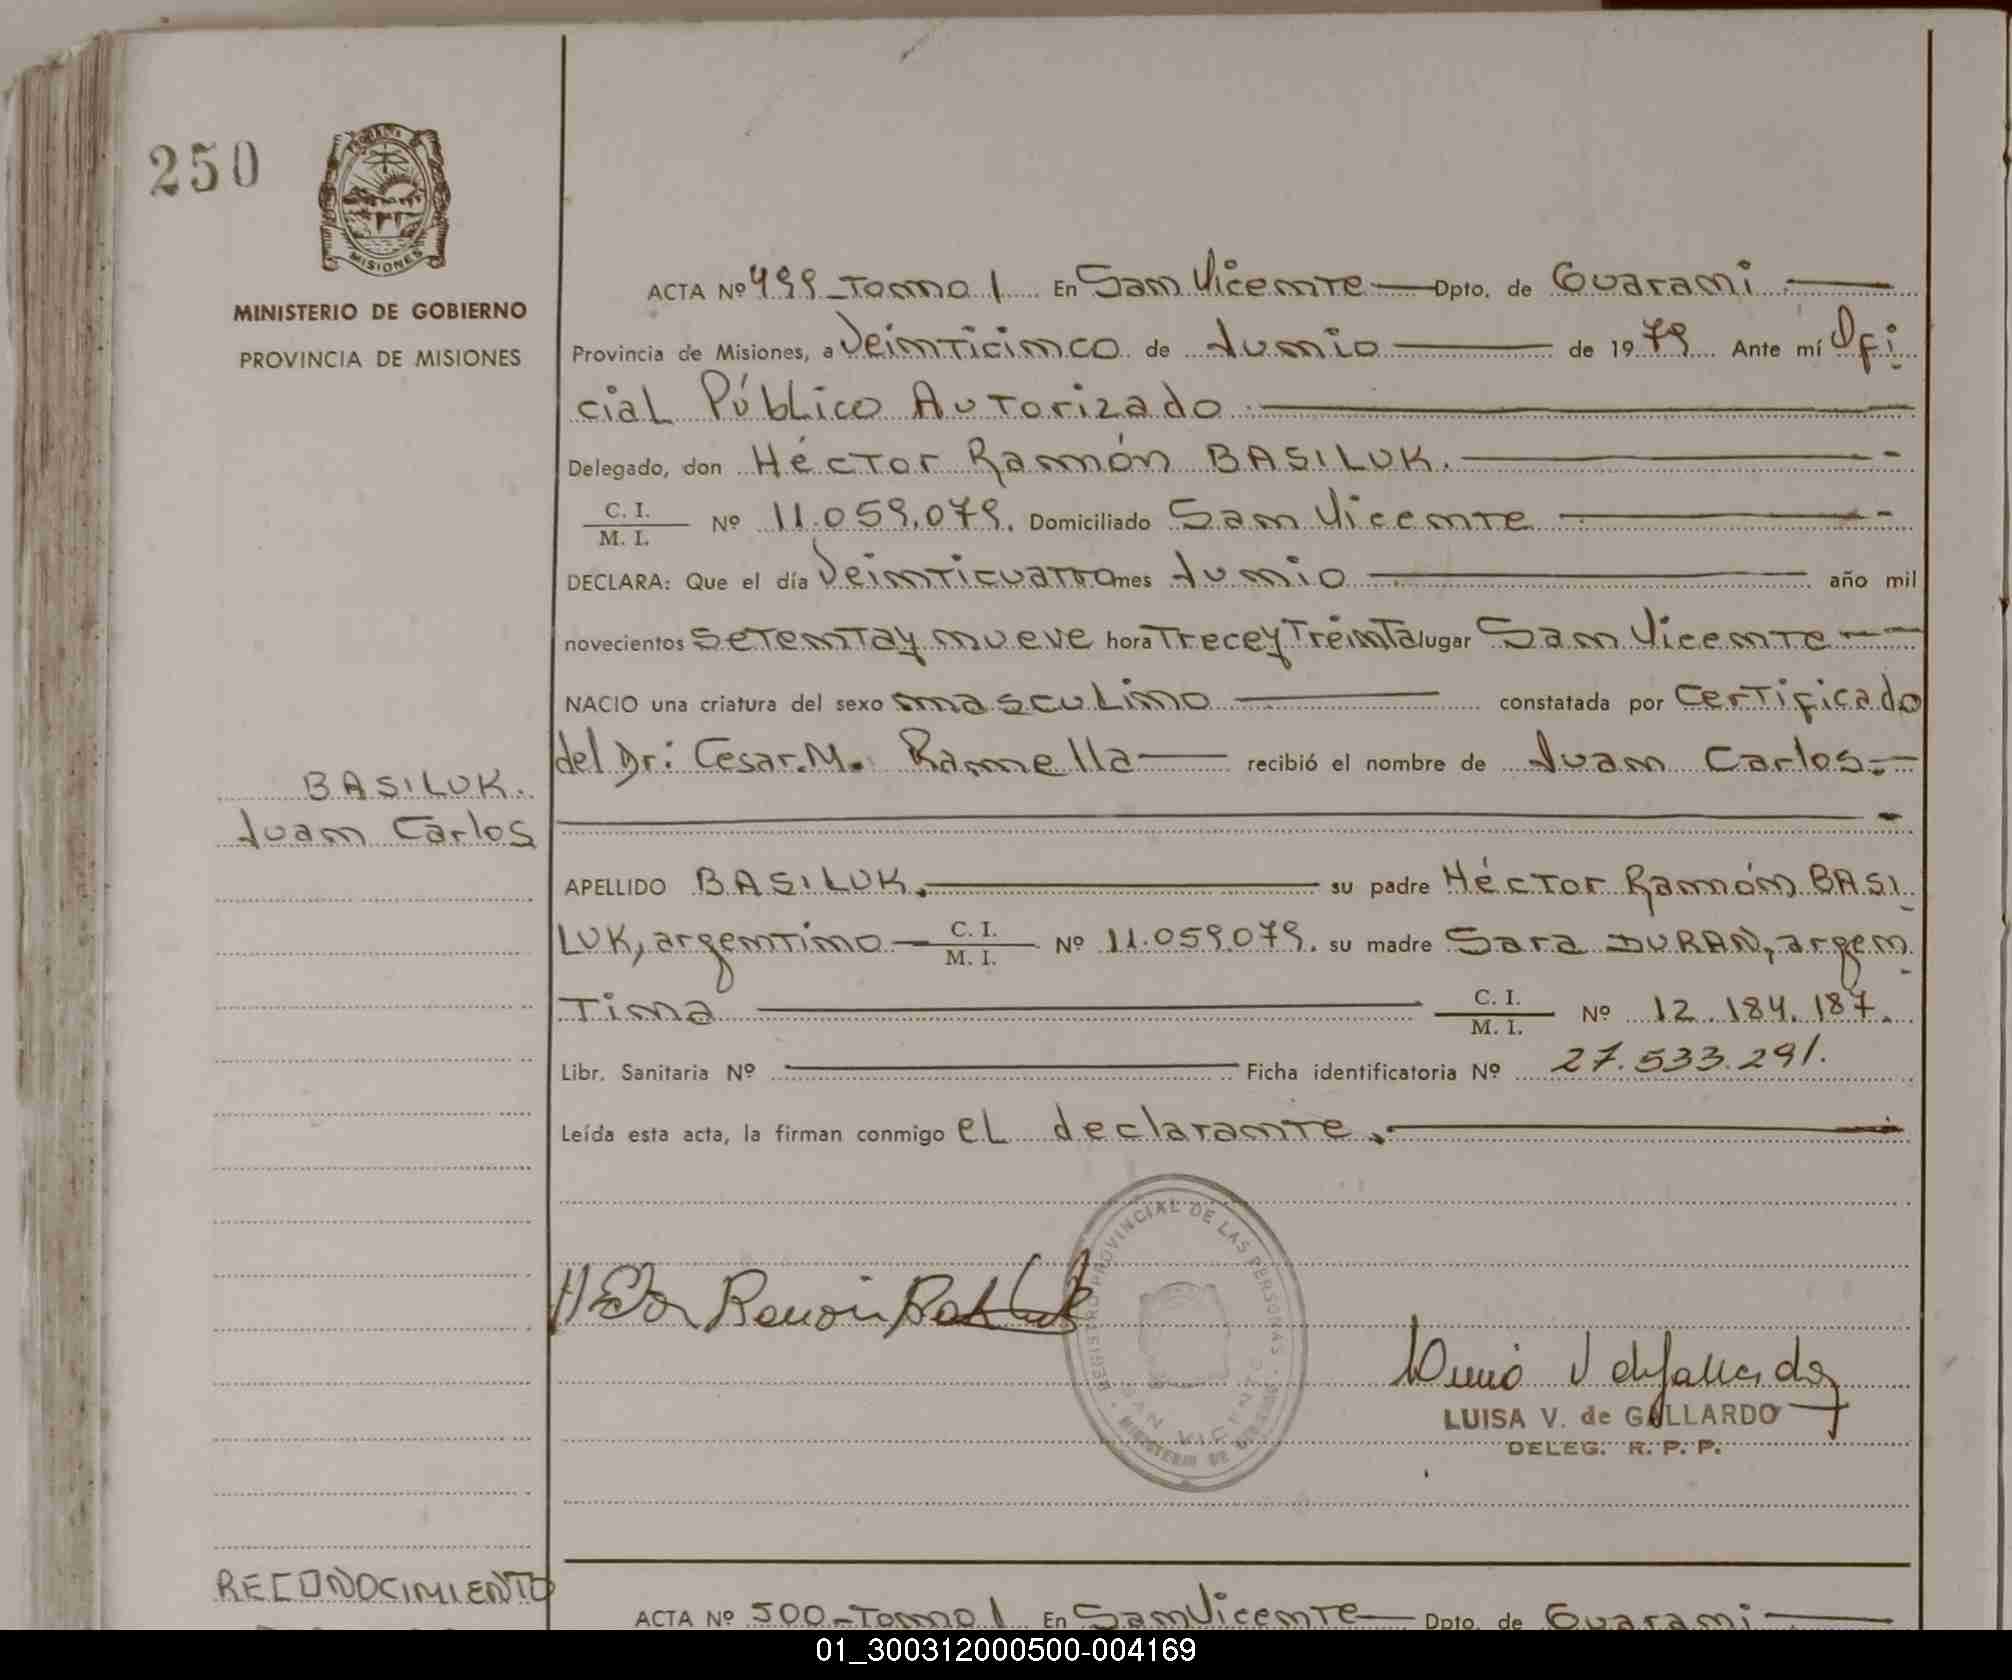 250
MISIONES
MINISTERIO DE GOBIERNO
PROVINCIA DE MISIONES
ACTA Nº 499 - Tomo I En San Vicente — Dpto. de Guaraní —
Provincia de Misiones, a Veinticinco de Junio — de 1979 Ante mí Ofi
cial Público Autorizado —
Delegado, don Héctor Ramón BASILUK. —
C. I.
M. I. Nº 11.059.079. Domiciliado San Vicente —
DECLARA: Que el día Veinticuatro mes Junio — año mil
novecientos Setenta y nueve hora Trece y Treinta lugar San Vicente —
NACIO una criatura del sexo masculino — constatada por Certificado
del Dr: Cesar. M. Ramella — recibió el nombre de Juan Carlos. —
BASILUK.
Juan Carlos
APELLIDO BASILUK. — su padre Héctor Ramón BASI
LUK, argentino — C. I. M. I. Nº 11.059.079. su madre Sara DURAN, argen
tina — C. I. M. I. Nº 12.184.187.
Libr. Sanitaria Nº — Ficha identificatoria Nº 27.533.291.
Leída esta acta, la firman conmigo el declarante. —
REGISTRO PROVINCIAL DE LAS PERSONAS
SAN VICENTE
MINISTERIO DE GOBIERNO
Héctor Ramón Basiluk
LUISA V. de GALLARDO
DELEG. R. P. P.
RECONOCIMIENTO
ACTA Nº 500 - Tomo I En San Vicente — Dpto. de Guaraní —
01_300312000500-004169